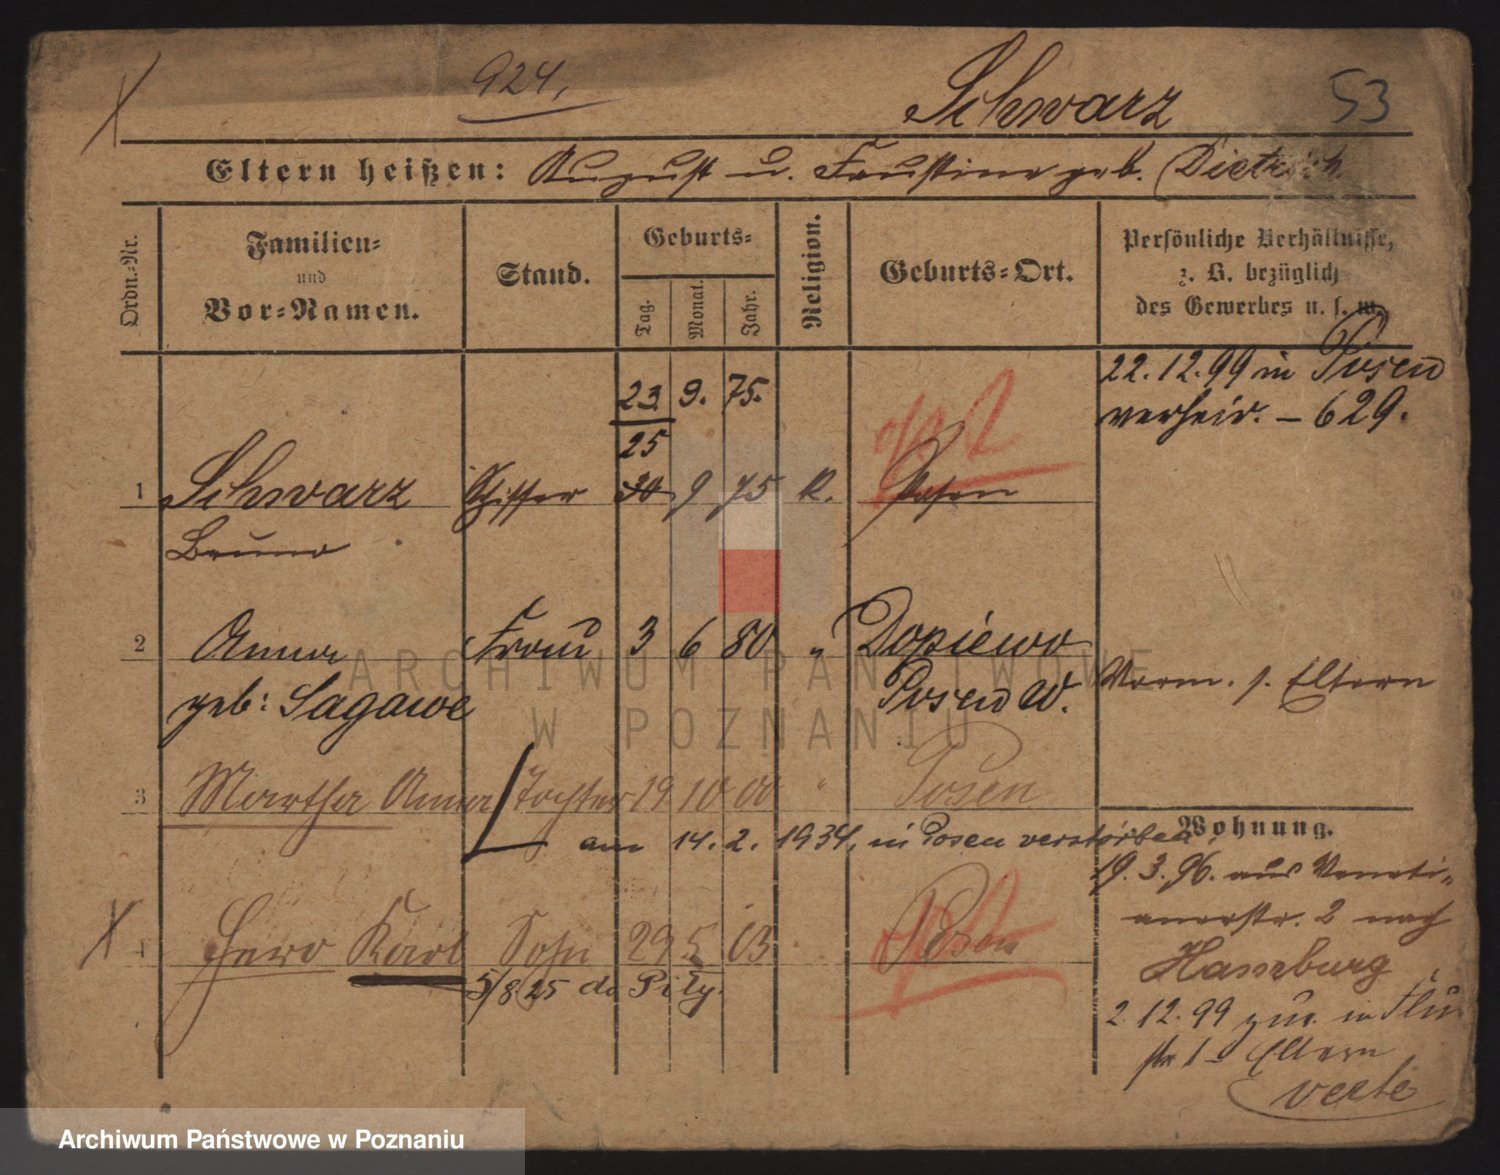 924.
Schwarz
53
Eltern heißen: August u. Faustine geb. Dietrich
Ordn.-Nr.
Familien- und Vor-Namen.
Stand.
Geburts-
Tag.
Monat.
Jahr.
Religion.
Geburts-Ort.
Persönliche Verhältnisse,
z. B. bezüglich
des Gewerbes u. s. w.
22.12.99 in Posen
verheir. – 629.
23. 9. 75.
25
1 Schwarz Schiffer 30 9 75 K. Posen
Bruno
2 Anna Frau 3 6 80 " Dopiewo
geb: Sagawe Posen W.
Vorm. s. Eltern
3 Martha Anna Tochter 19 10 00 " Posen
am 14. 2. 1934. in Posen verstorben
Wohnung.
19. 3. 96. aus Veneti-
anerstr. 2 nach
Hamburg
4 Karl Sohn 29 5 03 Posen
5/8 25 do Piły.
2.12.99 zur. in
str 1 – Eltern
verte
ARCHIWUM PAŃSTWOWE
W POZNANIU
Archiwum Państwowe w Poznaniu